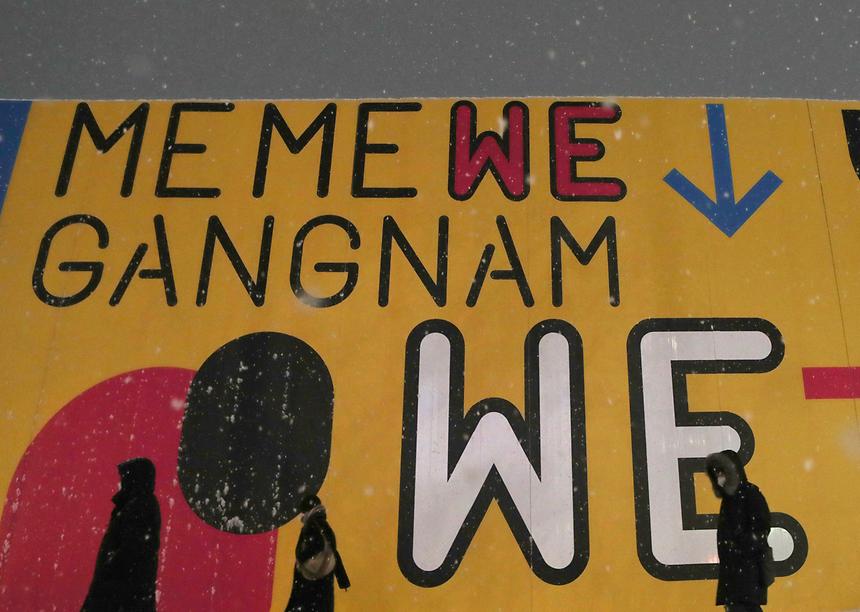 MEMEWE
GANGNAM
WE